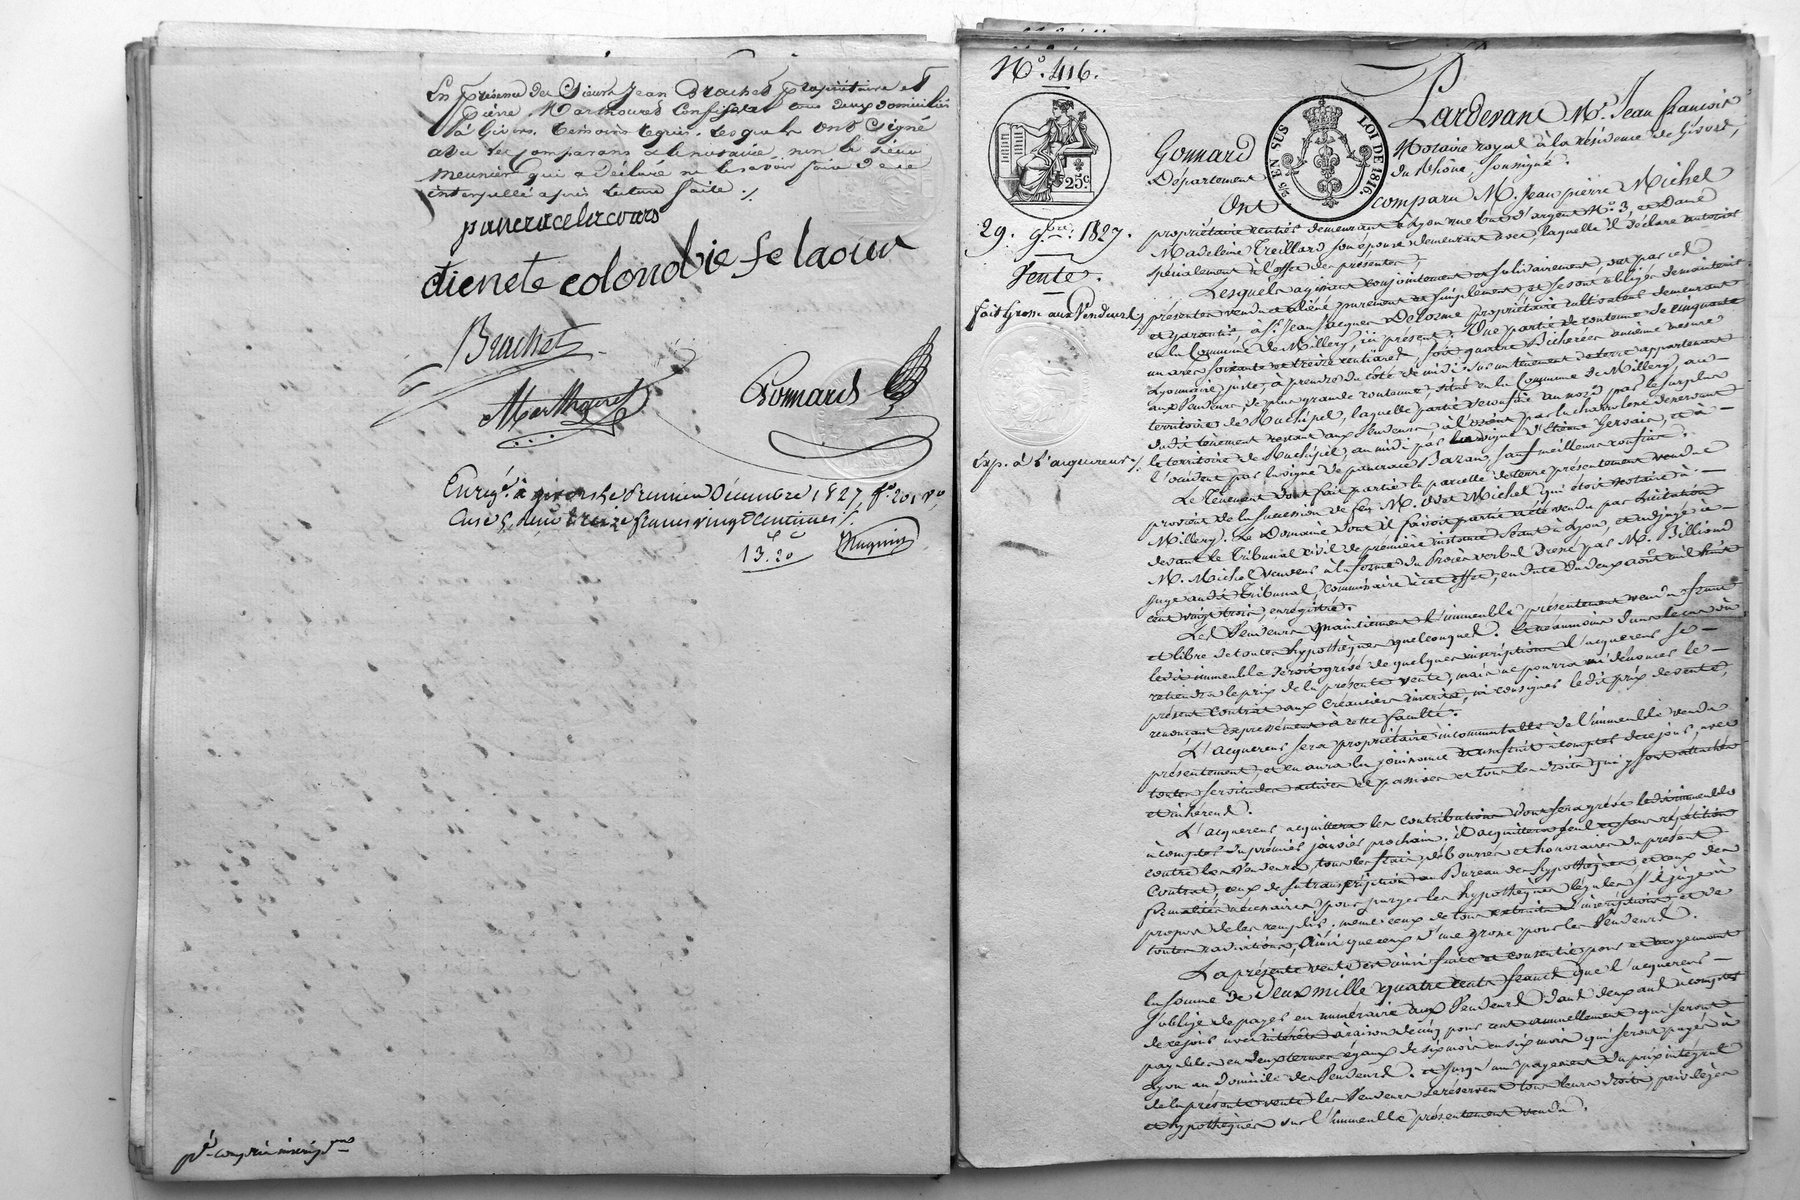 En présence des Sieurs Jean Brachet propriétaire et
Pierre Marthoured Confiseur tous deux domiciliés
à Givors, temoins requis, lesquels ont Signé
avec les comparans & le notaire non le Sieur
meunier qui a déclaré ne le savoir faire de ce
interpellé après lecture faite ./.
dienete colonobie fe laour
Brachet
Gonnard
Enreg.é à givors le Premier Décembre 1827, f.o 201 v.o
Case 5, reçu treize francs vingt Centimes
13.20
N.o 416.
25c
5e EN SUS
LOI DE 1816.
29. 9bre 1827.
Vente.
fait Grosse aux Vendeurs
Exp. à l'acquereur ./.
Pardevant M.e Jean François
Gonnard Notaire royal à la résidence de Givors,
Département du Rhône soussigné.
Ont comparu M. Jean pierre Michel
propriétaire rentier demeurant à Lyon rue but d'argent N.o 3, et Dame
Madeleine Treillard son épouse demeurant avec, laquelle il déclare autoriser
spécialement à l'effet des présentes,
Lesquels agissant conjointement et solidairement, ont par ces
présentes vendu et aliéné purement et simplement et se sont obligés de maintenir
et garantir, à Sr. Jean Jacques Delorme propriétaire cultivateur demeurant
en la Commune de Millery, ici présent: Une partie de contenue de cinquante
un ares soixante et treize centiares soit quatre Bicherées ancienne mesure
Lyonnaise juste, à prendre du côté de midi sur un tènement de terre appartenant
aux Vendeurs, de plus grande contenue, situé en la Commune de Millery, au
territoire de Machipel, laquelle partie se confine au nord par le surplus
dudit tènement restant aux Vendeurs à l'orient par la charrolière desservant
le territoire de Machipel, au midi par la vigne d'Etienne Gervais, et à
l'occident par la vigne de pancrace Bazan, sauf meilleurs confins.
Le tènement dont fait partie la parcelle de terre présentement vendue
provient de la succession de feu M. Michel qui étoit notaire à
Millery. Le Domaine dont il faisoit partie a été vendu par licitation
devant le Tribunal civil de première instance séant à Lyon, et adjugé à
M. Michel vendeur à la forme du Procès verbal dressé par M. Billioud
juge audit Tribunal, commissaire à cet effet, en date du deux août mil huit
cent vingt trois, enregistré.
Les Vendeurs maintiennent l'immeuble présentement vendu franc
et libre de toutes hypothèques quelconques. Et néanmoins dans le cas où
ledit immeuble seroit grevé de quelques inscriptions l'acquereur se
retiendra le prix de la présente vente, mais ne pourra ni dénoncer le
présent contrat aux Créanciers inscrits, ni consigner ledit prix de vente,
renonçant expressément à cette faculté.
L'acquereur sera propriétaire incommutable de l'immeuble vendu
présentement, et en aura la jouissance et usufruit à compter de ce jour, avec
toutes servitudes actives et passives et tous les droits qui y sont attachés
et inhérens.
L'acquereur acquittera les contributions dont sera grevé ledit immeuble
à compter du premier janvier prochain. il acquittera seul et sans répétition
contre les Vendeurs, tous les frais, débourrés et honoraires du présent
Contrat, ceux de sa transcription au Bureau des hypothèques, et ceux des
formalités nécessaires pour purger les hypothèques légales s'il juge à
propos de les remplir, même ceux de tous extraits d'inscriptions et de
toutes radiations, Ainsi que ceux d'une grosse pour les Vendeurs.
La présente vente est ainsi faite et consentie pour et moyennant
la somme de Deux mille quatre cents francs que l'acquereur
s'oblige de payer en numéraire aux Vendeurs dans deux ans à compter
de ce jour avec intérêts à raison de cinq pour cent annuellement qui seront
payables en deux termes égaux de six mois en six mois qui seront payés à
Lyon au domicile des Vendeurs. et jusqu'au payement du prix intégral
de la présente vente les Vendeurs se réservent tous leurs droits, privilèges
et hypothèques sur l'immeuble présentement vendu.